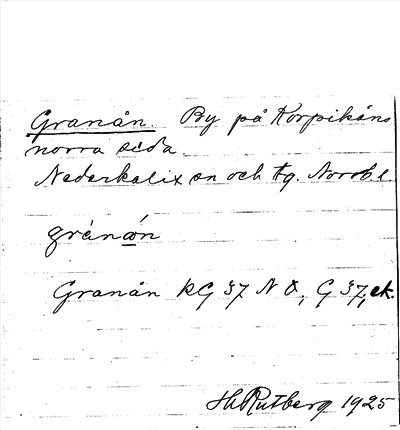 Granån. By på Korpikåns
norra sida
Nederkalix sn och tg. Norrb. l
grànån
Granån KG 37 NO, G 37, ek.
H. Rutberg 1925